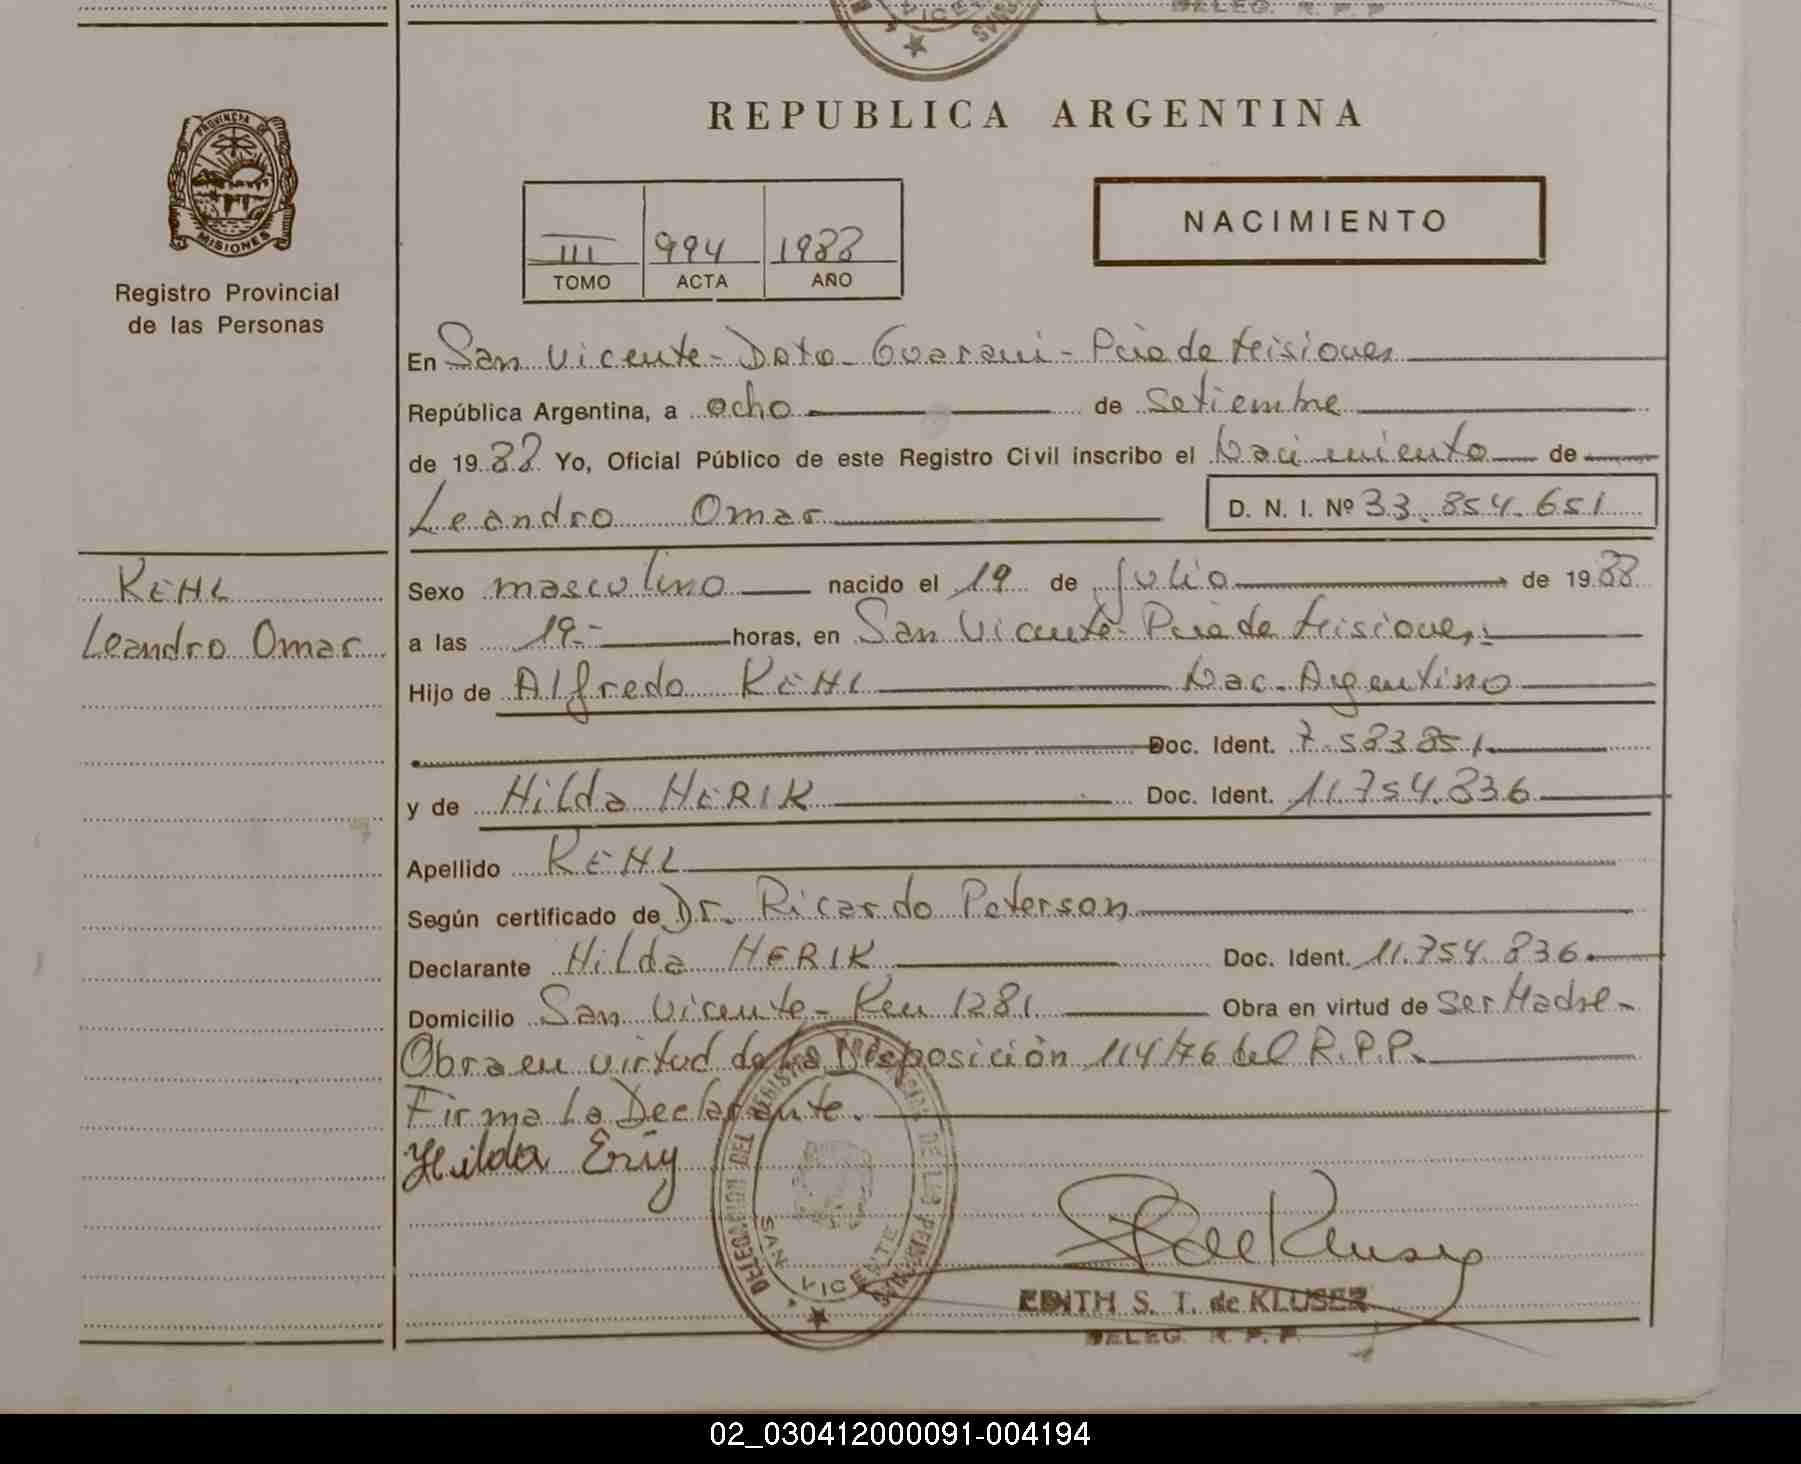 DELEG. R. P. P.
REPUBLICA ARGENTINA
PROVINCIA DE MISIONES
NACIMIENTO
III 994 1988
TOMO ACTA AÑO
Registro Provincial
de las Personas
En San Vicente - Dpto - Guarani - Pcia de Misiones
República Argentina, a ocho de setiembre
de 1988 Yo, Oficial Público de este Registro Civil inscribo el Nacimiento de
Leandro Omar D. N. I. Nº 33.854.651
KEHL
Leandro Omar
Sexo masculino nacido el 19 de julio de 1988
a las 19.- horas, en San Vicente - Pcia de Misiones.-
Hijo de Alfredo KEHL Nac. Argentino
Doc. Ident. 7.583.851
y de Hilda HERIK Doc. Ident. 11.754.836
Apellido KEHL
Según certificado de Dr. Ricardo Peterson
Declarante Hilda HERIK Doc. Ident. 11.754.836.
Domicilio San Vicente - Km 1281 Obra en virtud de ser Madre -
Obra en virtud de la Disposición 114/76 del R.P.P.
Firma la Declarante.
Hilda Eriy
DELEGACION DEL REGISTRO PROVINCIAL DE LAS PERSONAS
SAN VICENTE
EDITH S. T. de KLUSER
DELEG. R. P. P.
02_030412000091-004194